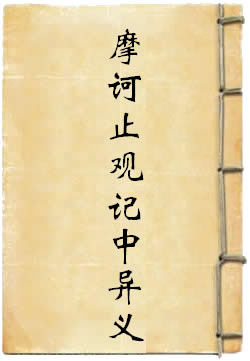 摩诃止观记中异义